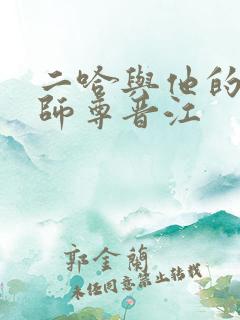 二哈與他的
師尊晋江
郭金蘭
未经同意禁止转载